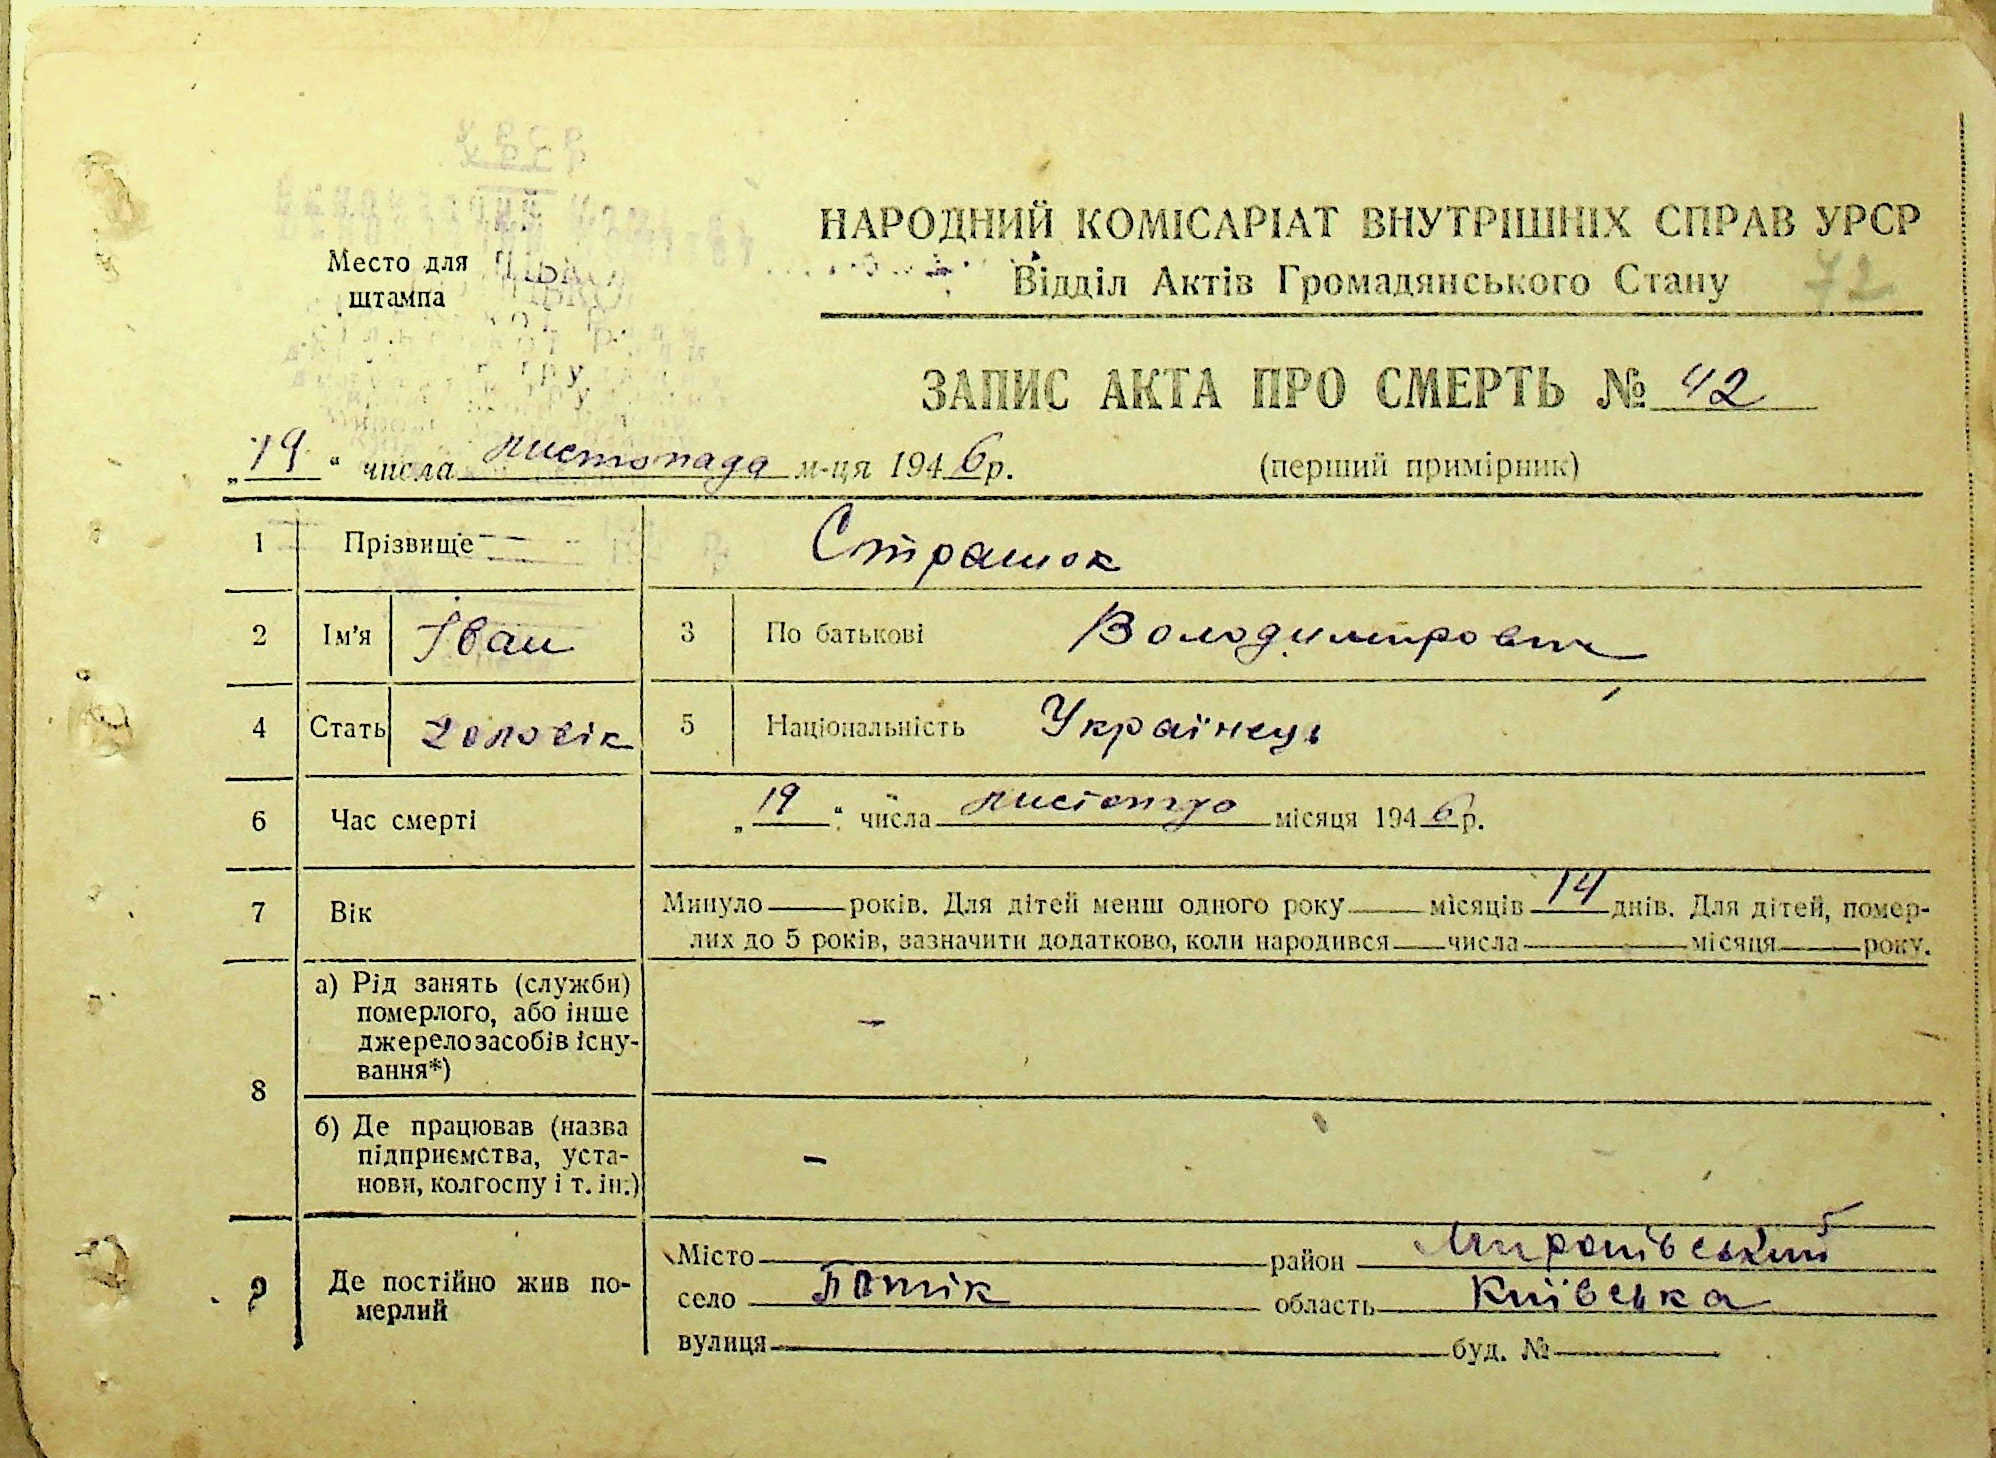 НАРОДНИЙ КОМІСАРІАТ ВНУТРІШНІХ СПРАВ УРСР
Место для штампа
Відділ Актів Громадянського Стану 72
ЗАПИС АКТА ПРО СМЕРТЬ № 42
„19“ числа листопада м-ця 1946р. (перший примірник)
1 Прізвище Страшок
2 Ім'я Іван 3 По батькові Володимирович
4 Стать чоловік 5 Національність Українець
6 Час смерті „19“ числа листопадо місяця 1946р.
7 Вік Минуло — років. Для дітей менш одного року — місяців 14 днів. Для дітей, помер-
лих до 5 років, зазначити додатково, коли народився — числа — місяця — року.
8 а) Рід занять (служби)
померлого, або інше
джерело засобів існу-
вання*) –
б) Де працював (назва
підприємства, уста-
нови, колгоспу і т. ін.) –
9 Де постійно жив по-
мерлий
Місто район Миронівський
село Потік область Київська
вулиця буд. №